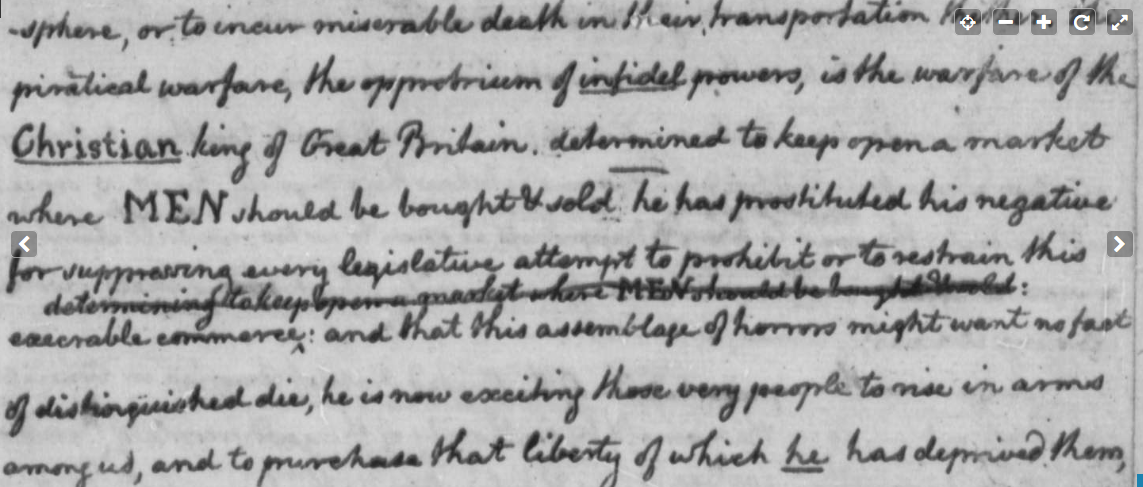 -sphere, or to incur miserable death in their transportation
piratical warfare, the opprobrium of infidel powers, is the warfare of the
Christian king of Great Britain. determined to keep open a market
where MEN should be bought & sold he has prostituted his negative
for suppressing every legislative attempt to prohibit or to restrain this
determining to keep open a market where MEN should be bought & sold:
execrable commerce: and that this assemblage of horrors might want no fact
of distinguished die, he is now exciting those very people to rise in arms
among us, and to purchase that liberty of which he has deprived them,